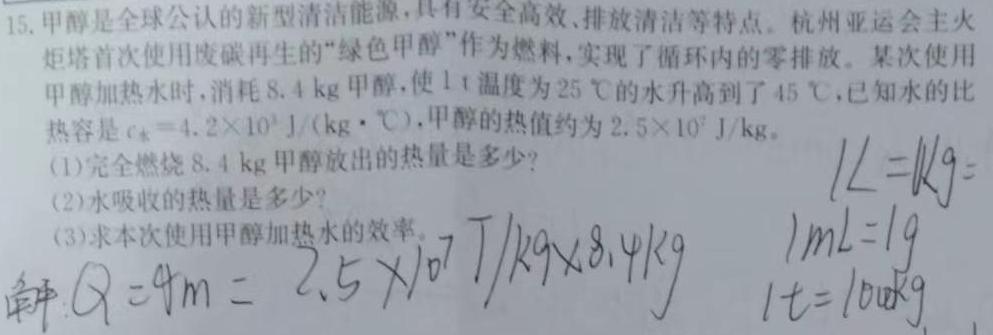 15. 甲醇是全球公认的新型清洁能源,具有安全高效、排放清洁等特点。杭州亚运会主火
炬塔首次使用废碳再生的“绿色甲醇”作为燃料,实现了循环内的零排放。某次使用
甲醇加热水时,消耗 8.4 kg 甲醇,使 1 t 温度为 25 ℃的水升高到了 45 ℃,已知水的比
热容是 c水=4.2×10³ J/(kg·℃),甲醇的热值约为 2.5×10⁷ J/kg。
(1)完全燃烧 8.4 kg 甲醇放出的热量是多少?
(2)水吸收的热量是多少?
(3)求本次使用甲醇加热水的效率。
1L=1kg=
1mL=1g
1t=1000kg
解:Q=qm= 2.5×10⁷J/kg×8.4kg